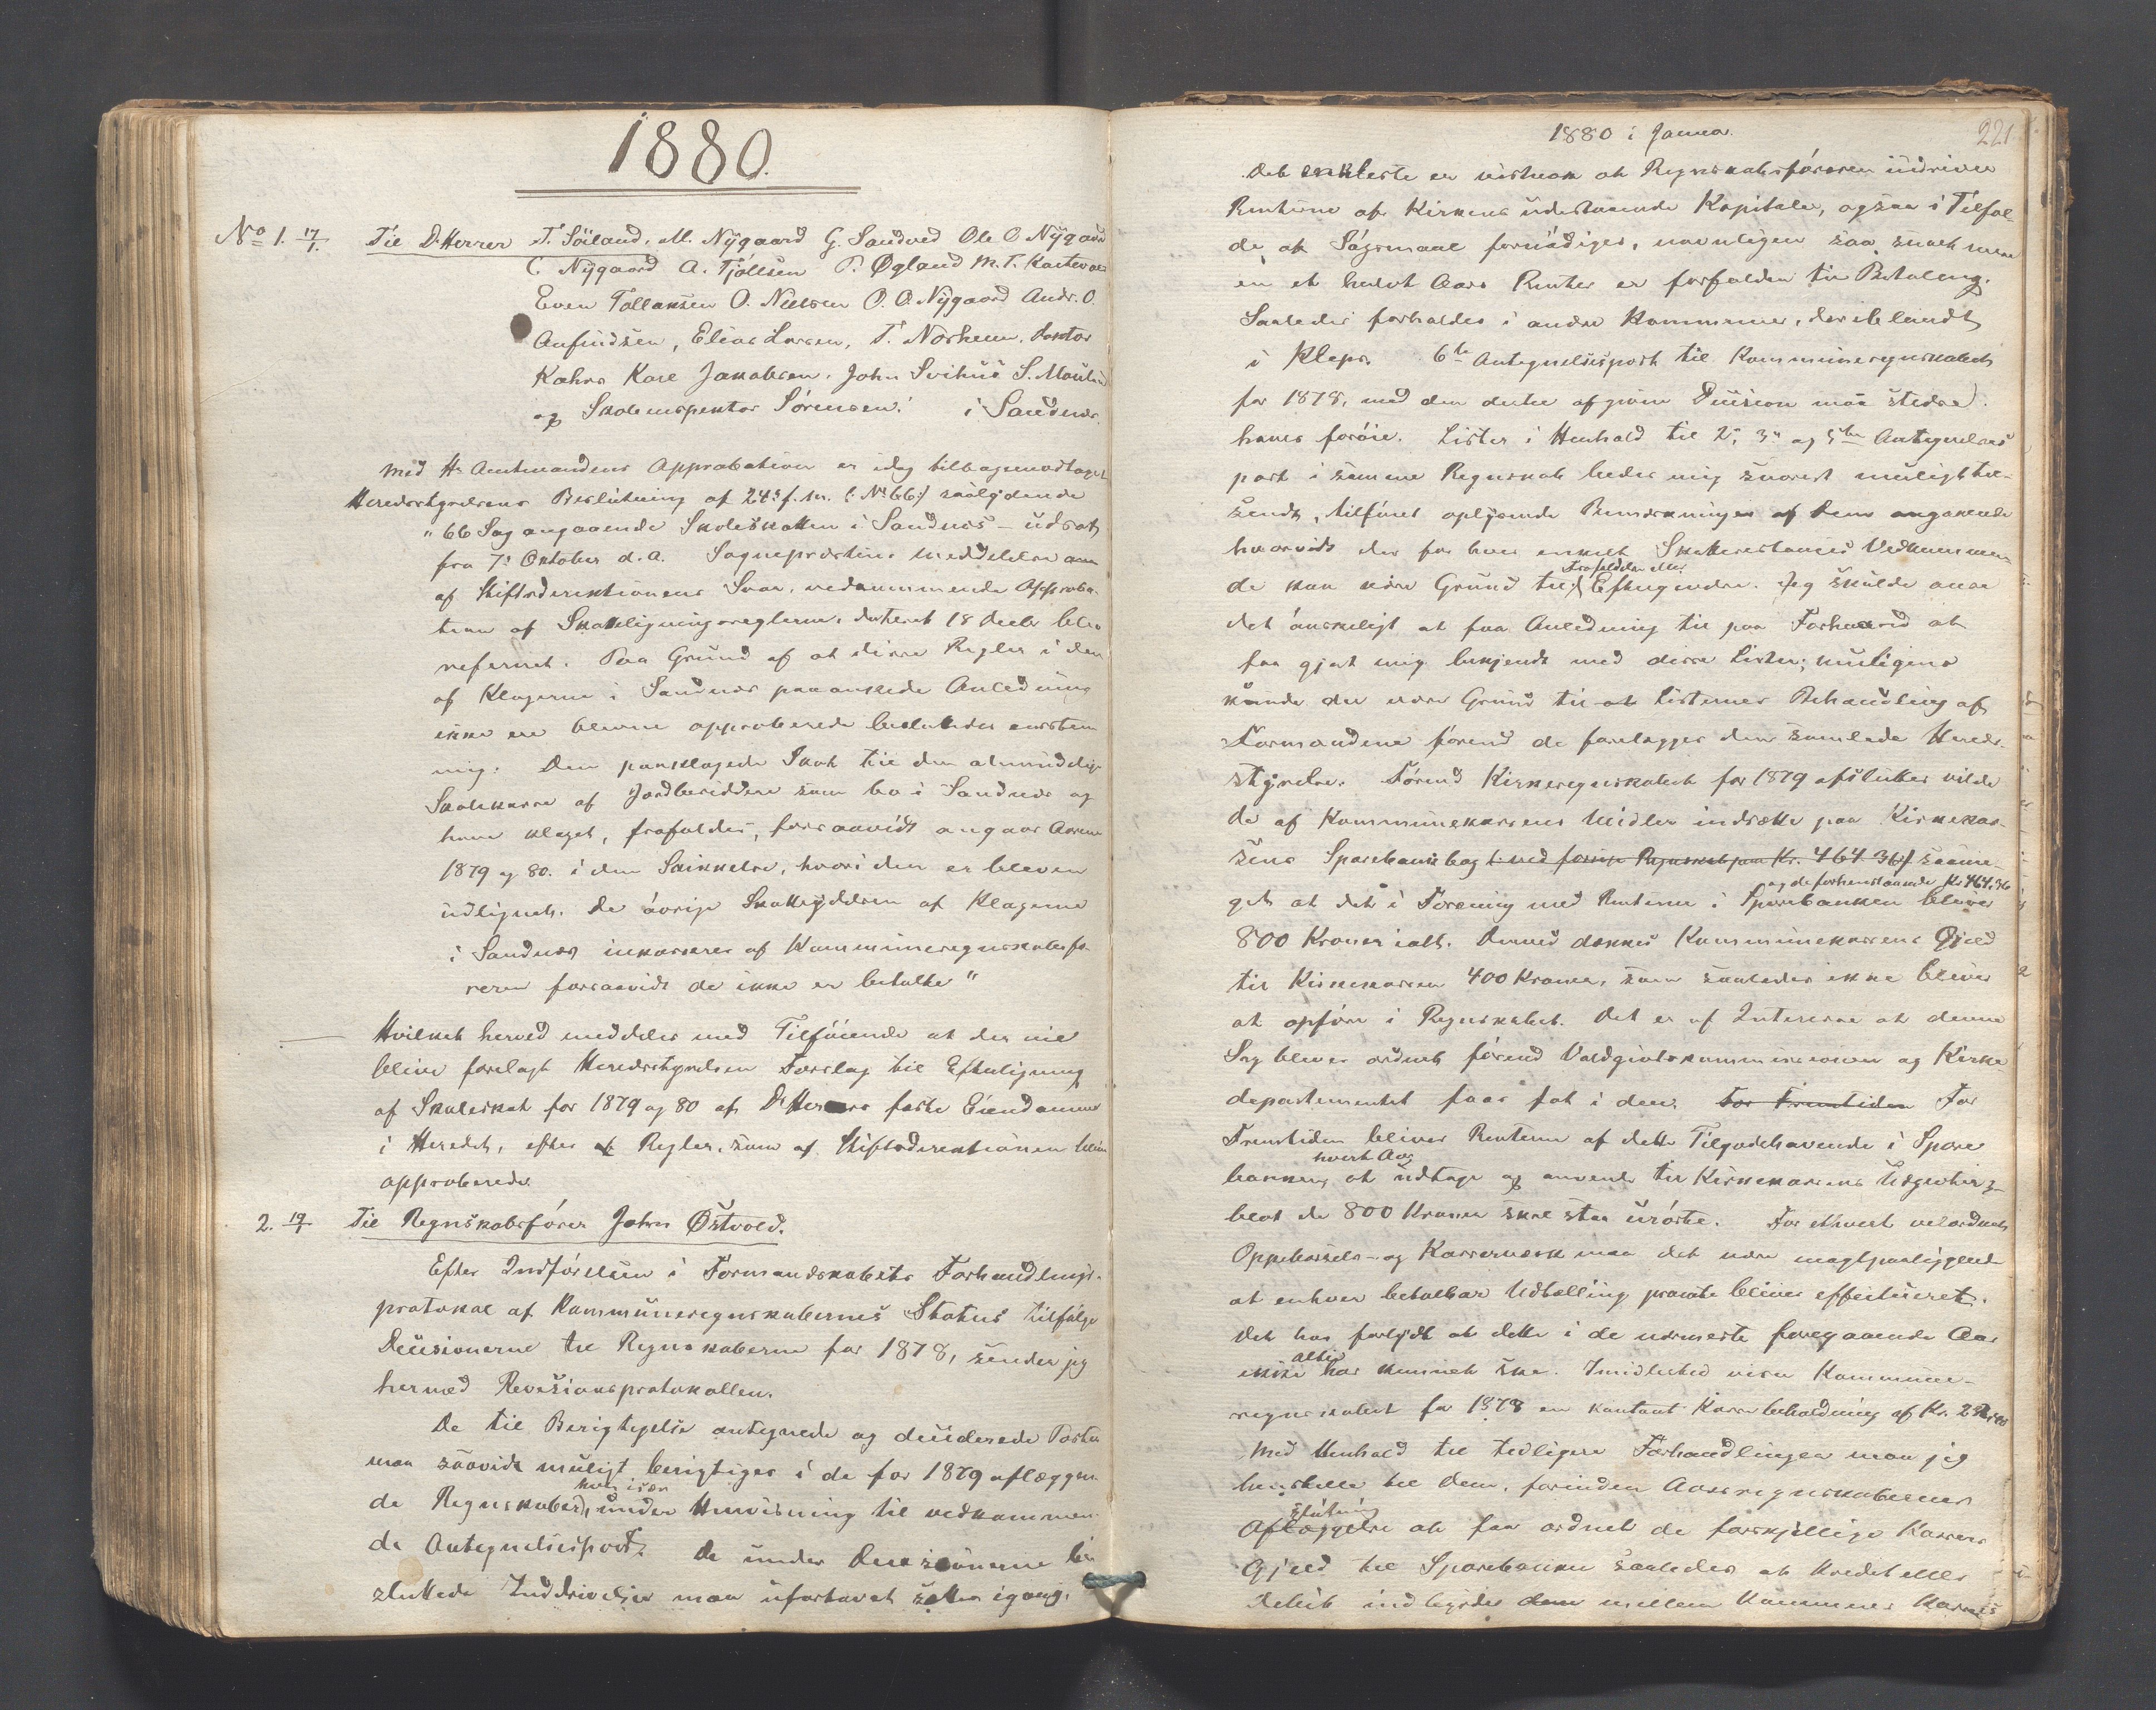 1880.
No 1. 17/1. Til DHerrer T. Söiland, M. Nÿgaard G. Sandved Ole O Nÿgaard
C. Nÿgaard A. Tjöllsen P. Øgland M. T.
Even Tollaksen O. Nielsen O. O. Nÿgaard Andr. O.
Anfindsen, Elias Larsen, T. Norheim, Doktor
Kahrs Karl Jakobsen, John Svihus S. Mauland
og Skoleinspektør Sörensen. i Sandnes.
Med Hr Amtmandens Approbation er idag tilbagemodtaget
Heredsstyrelsens Beslutning af 24de f. M. (: No 66 :) saalydende
"66 Sag angaaende Skoleskatten i Sandnes – udsat
fra 7de Oktober d. A. Sogneprestens Meddelelse om
af Stiftsdirektionens Svar, vedkommende Approba-
tion af Skatteligningsreglerne, dateret 18 Decbr blev
refereret. Paa Grund af at disse Regler i den
af Klagerne i Sandnes paaankede Anledning
ikke ere blevne approberede besluttedes enstem
mig: Den paaklagede Skat til den almindelige
Skolekasse af Jordbesiddere som bo i Sandnes og
have klaget, frafaldes, forsaavidt angaar Aarene
1879 og 80. i den Skikkelse, hvori den er bleven
udlignet. De övrige Skatteÿdelser af Klagerne
i Sandnes inkasseres af Kommuneregnskabsfö-
reren forsaavidt de ikke er betalte"
Hvilket herved meddeles med Tilföiende at der vil
blive forelagt Heredsstyrelsen Forslag til Efterligning
af Skoleskat for 1879 og 80 af DHerrers faste Eiendomme
i Heredet, efter Regler, som af Stiftsdirektionen blive
approberede.
2. 19/1 Til Regnskabsförer John Østvold.
Efter Indförelsen i Formandskabets Forhandlings-
protokol af Kommuneregnskabernes Status tilfölge
Decisionerne til Regnskaberne for 1878, sender jeg
hermed Revisionsprotokollen.
De til Berigtigelse antegnede og deciderede Poster
maa saavidt muligt berigtiges i de for 1879 aflæggen-
hver især
de Regnskaber, under Henvisning til vedkommen-
de Antegnelsespost. De under Decisionerne be-
sluttede Inddrivelser maa ufortövet sættes igang.
1880 i Januar. 221
Det enkleste er vistnok at Regnskabsföreren inddriver
Renterne af Kirkens udestaaende Kapitaler, ogsaa i Tilfæl-
de, at Sögsmaal fornödiges, navnligen saa snart mere
en et halvt Aars Renter er forfalden til Betaling.
Saaledes forholdes i andre Kommuner, deriblandt
i Klepp. 6te Antegnelsespost til Kommuneregnskabet
for 1878, med den dertil afgivne Decision maa
haves foröie. Lister i Henhold til 2n, 3n og 5te Antegnelses
post i samme Regnskab bedes mig snarest muligt til-
sendt, tilföiet oplÿsende Bemærkninger af Dem angaaende
hvorvidt der for hver enkelt Skatterestances Vedkommen-
Frafaldelse eller
de kan være Grund til Eftergivelse. Jeg skulde anse
det önskeligt at faa Anledning til paa Forhaand at
faa gjort mig bekjendt med disse Lister; muligens
kunde der være Grund til at Listernes Behandling af
Formændene förend de forelægges den samlede Hereds-
styrelse. Förend Kirkeregnskabet for 1879 afsluttes vilde
De af Kommunekassens Midler indsætte paa Kirkekas-
sens Sparebankbog (: ved forrige Regnskab paa Kr. 464 36 :) saame-
og de forhenstaaende Kr 464,36
get at det i Forening med Renterne i Sparebanken bliver
800 Kroner ialt. Derved dækkes Kommunekassens Gjæld
til Kirkekassen 400 Kroner, som saaledes ikke bliver
at opföre i Regnskabet. Det er af Interesse at denne
Sag bliver ordnet förend Voldgivtskommissionen og Kirke
departementet faar fat i den. For Fremtiden For
Fremtiden bliver Renterne af dette Tilgodehavende i Spare
hvert Aar
banken, at udtage og anvende til Kirkekassens Udgivter,
blot de 800 Kroner skal staa urörte. For ethvert velordnet
Oppebörsels- og Kassevæsen maa det være magtpaaliggende
at enhver betalbar Udtælling præcist bliver effectueret.
Det har forlÿdt at dette i de nærmeste foregaaende Aar
altid
ikke har kunnet ske. Imidlertid viser Kommune-
regnskabet for 1878 en kontant Kassebeholdning af Kr.
Med Henhold til tidligere Forhandlinger maa jeg
henstille til Dem, forinden Aarsregnskabernes
Slutning
Aflæggelse at faa ordnet de forskjellige Kassers
Gjæld til Sparebanken saaledes at Kredit eller
Debit indbyrdes dem mellem Kommunes Kasser